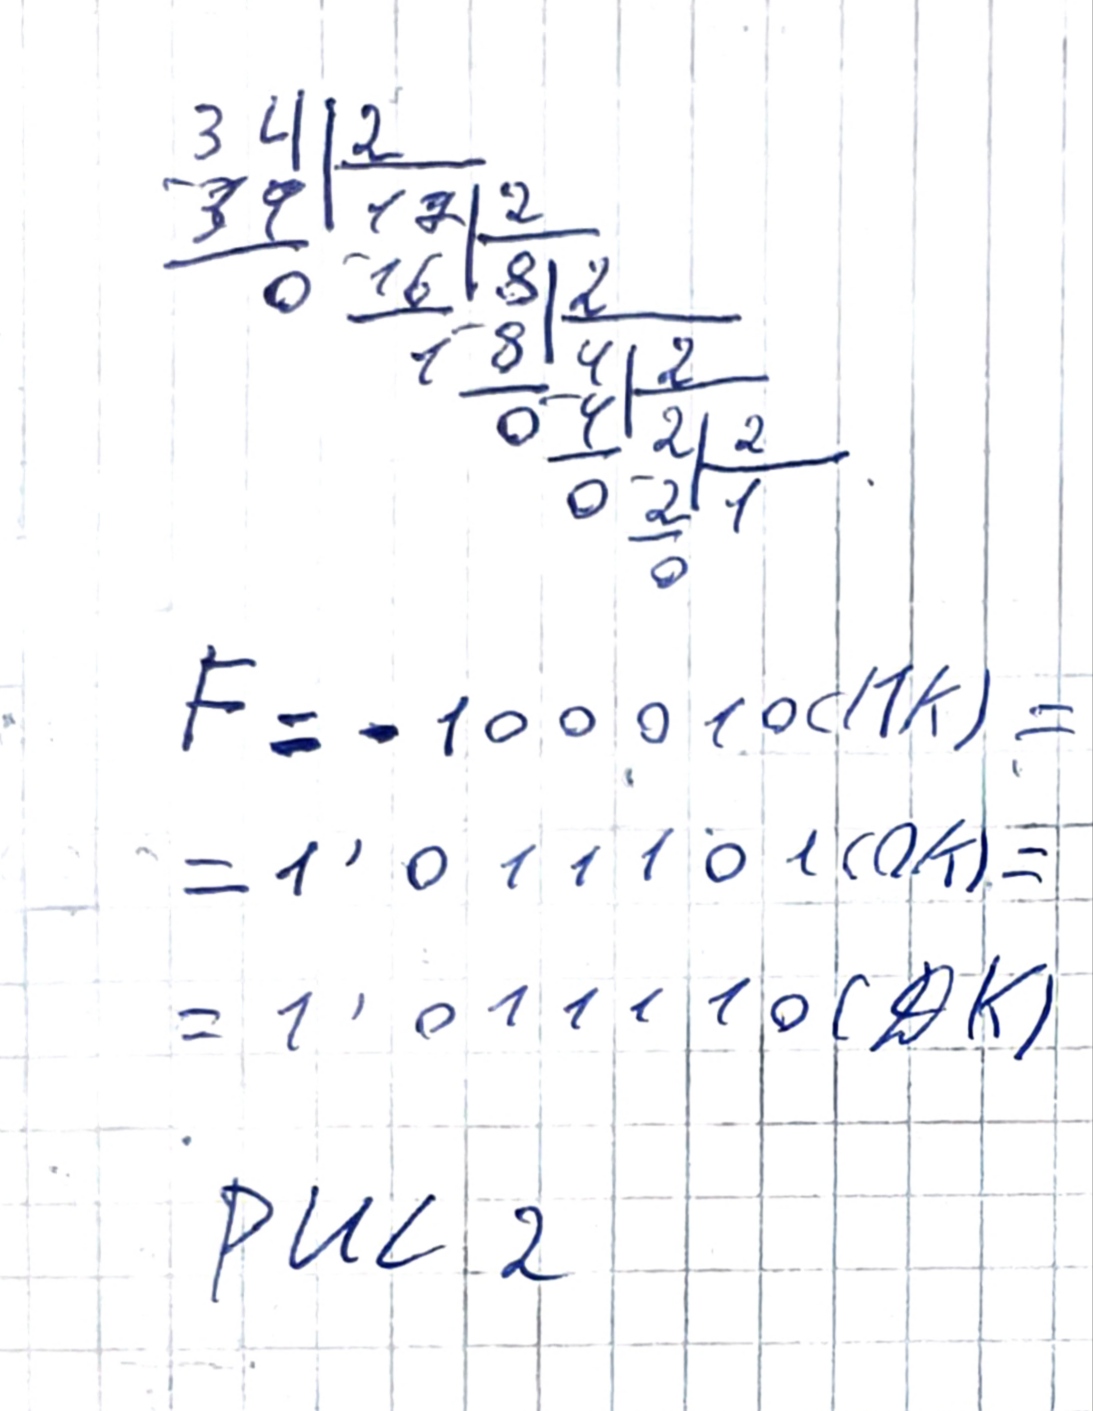 34 | 2
-34 | 17 | 2
0 -16 | 8 | 2
1 -8 | 4 | 2
0 -4 | 2 | 2
0 -2 | 1
0
F = - 100010(ПК) =
= 1' 011101(ОК) =
= 1' 011110(ДК)
РИС 2